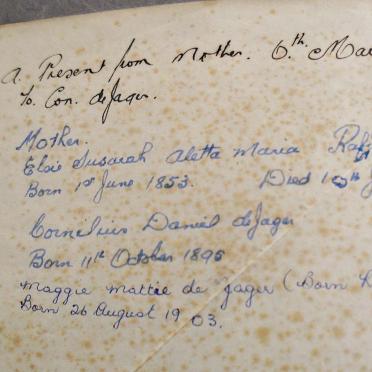 A. Present from Mother. 6.th Mar
To. Con. deJager.
Mother.
Elsie Susarah Aletta Maria
Born 1st June 1853. Died
Cornelius Daniel deJager
Born 11th October 1895
Maggie Mattie de Jager (Born
Born 26 August 1903.